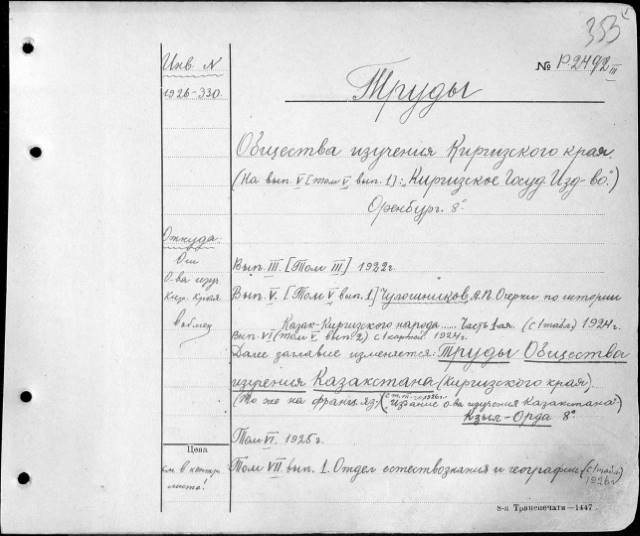 353
Инв N
1926-330.
№ P2492 III
Труды
Общества изучения Киргизского края.
(На вып. V [том V вып. 1]: „Киргизское Госуд. Изд-во.")
Оренбург. 8°
Откуда:
От
О-ва изуч.
Кирг. Края
в обмен
Вып. III. [Том III] 1922г.
Вып. V. [Том V вып. 1] Чулошников А.П. Очерки по истории
Казак-Киргизского народа...... Часть 1ая. (с 1 табл.) 1924г.
Вып. VI (том V вып. 2) с 1 картой. 1924г.
Далее заглавие изменяется: Труды Общества
изучения Казакстана (Киргизского края).
(То же на франц. яз.) (с т. VII 1926г. „Издание о-ва изучения Казакстана")
Кзыл-Орда 8°
Том VI. 1925г.
Цена
см. в контр.
листе!
Том VII вып. 1. Отдел естествознания и географии (с 1 табл.)
1926г
8-я Транспечати—1447.